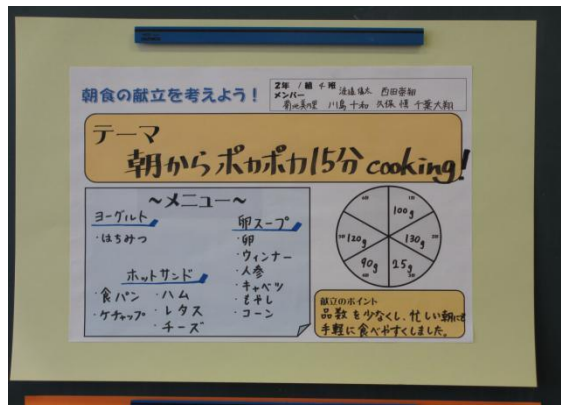 朝食の献立を考えよう!
2年 1組 4班
メンバー
川島十和 久保惺 千葉大翔
テーマ
朝からポカポカ15分cooking!
~メニュー~
ヨーグルト
・はちみつ
ホットサンド
・食パン ・ハム
・ケチャップ ・レタス
・チーズ
卵スープ
・卵
・ウィンナー
・人参
・キャベツ
・もやし
・コーン
100g
130g
25g
90g
120g
献立のポイント
品数を少なくし、忙しい朝にも
手軽に食べやすくしました。